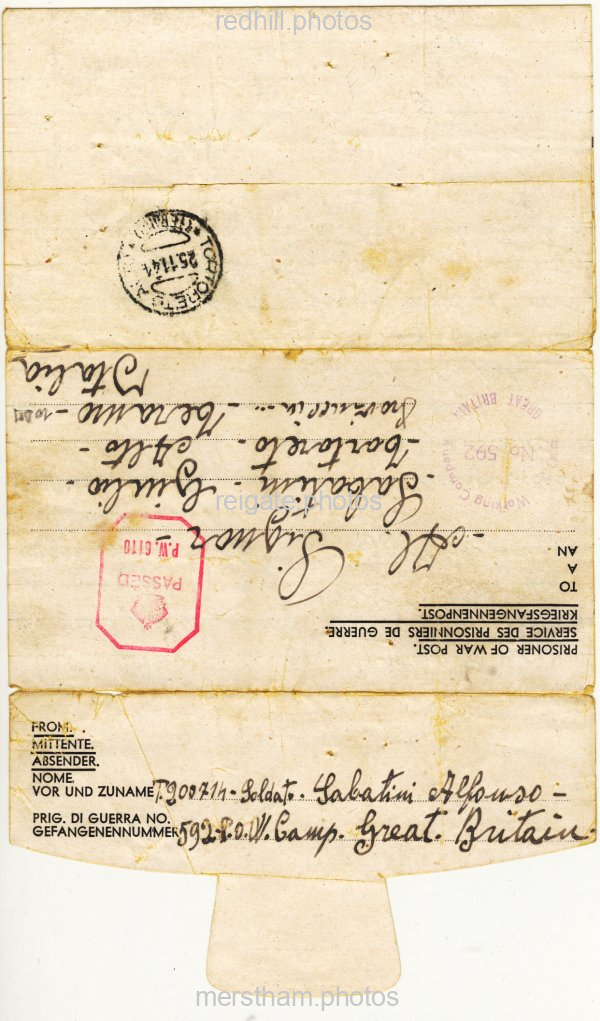 redhill.photos
TORTORETO ALTO
(TERAMO)
25.11.44
PRISONER OF WAR POST.
SERVICE DES PRISONNIERS DE GUERRE.
KRIEGSFANGENNENPOST.
TO
A
AN
Al Signor -
- Sabatini - Giulio -
- tortoreto - Alto -
Provincia ... - teramo -
Italia
PASSED
P.W. 6110
Working Company
No 592
GREAT BRITAIN
reigate.photos
FROM.
MITTENTE.
ABSENDER.
NOME.
VOR UND ZUNAME T.200714 - Soldato - Sabatini Alfonso -
PRIG. DI GUERRA NO.
GEFANGENENNUMMER 592 - P.O.W. Camp. Great. Britain -
merstham.photos